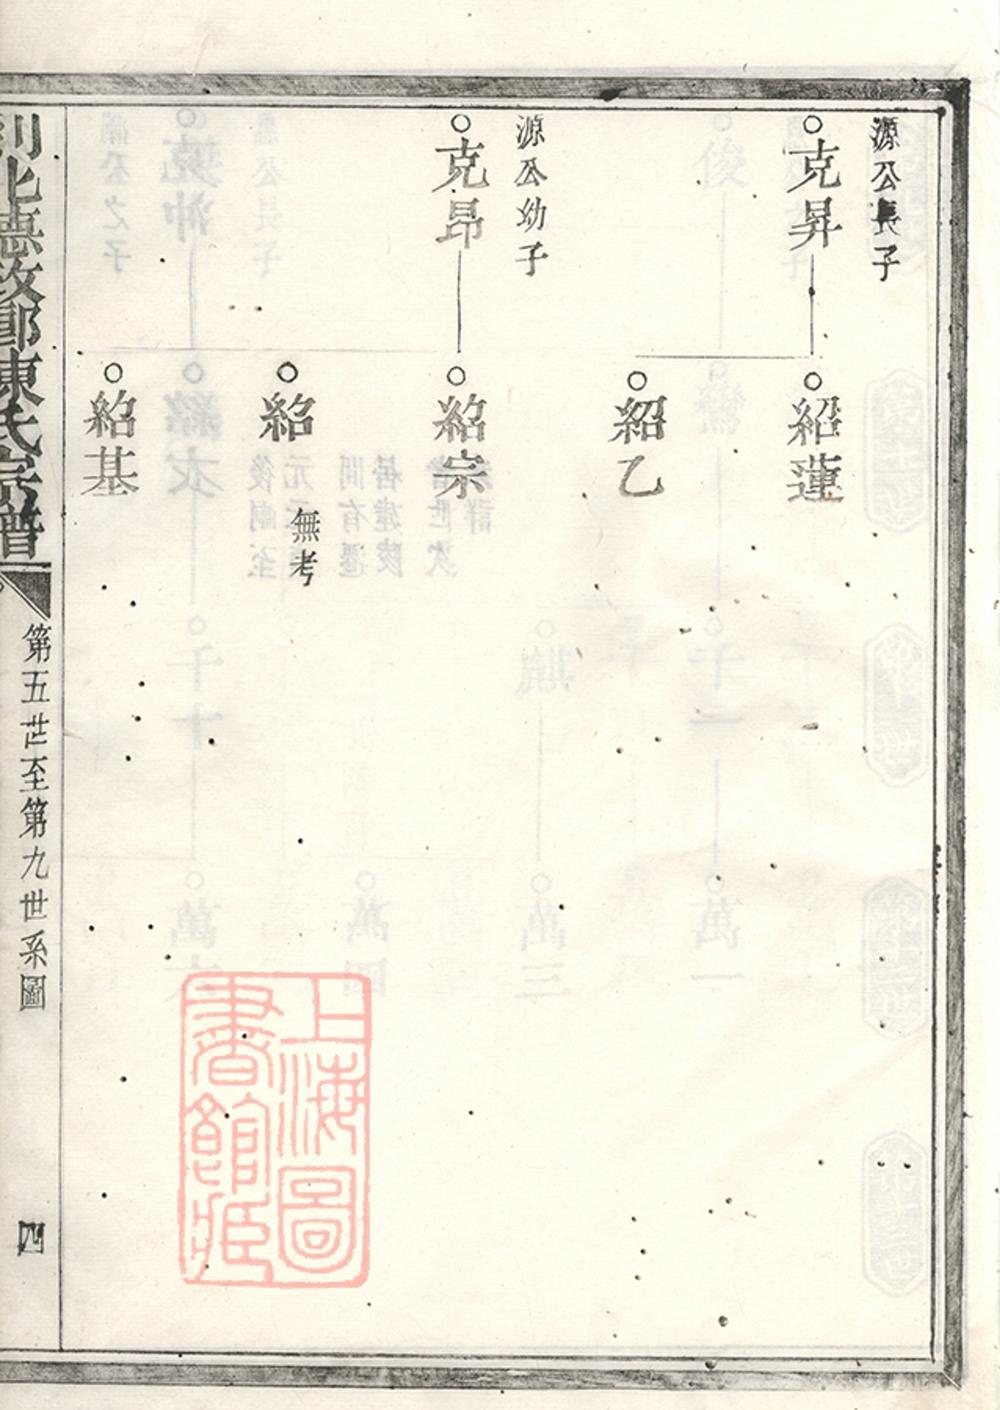 源公長子
克昇
紹蓮
紹乙
源公幼子
克昂
紹宗
紹
無考
紹基
北德政鄉陳氏宗譜
第五世至第九世系圖
四
上海圖
書館藏